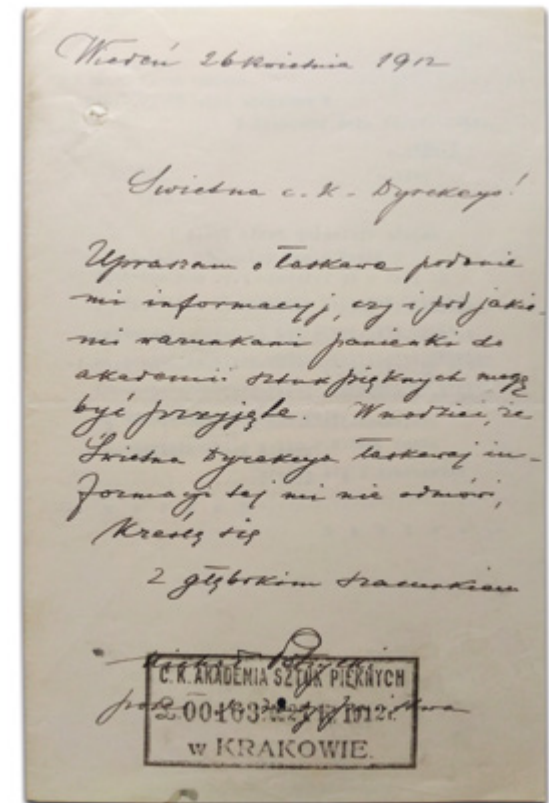 Wiedeń 26 kwietnia 1912
Świetna c. K. Dyrekcyo!
Upraszam o łaskawe podanie
mi informacyj, czy i pod jakie-
mi warunkami panienki do
akademii sztuk pięknych mogą
być przyjęte. W nadziei, że
Świetna Dyrekcya łaskawej in-
formacji tej mi nie odmówi,
Kreślę się
z głębokim szacunkiem
C. K. AKADEMIA SZTUK PIĘKNYCH
1912r.
w KRAKOWIE.